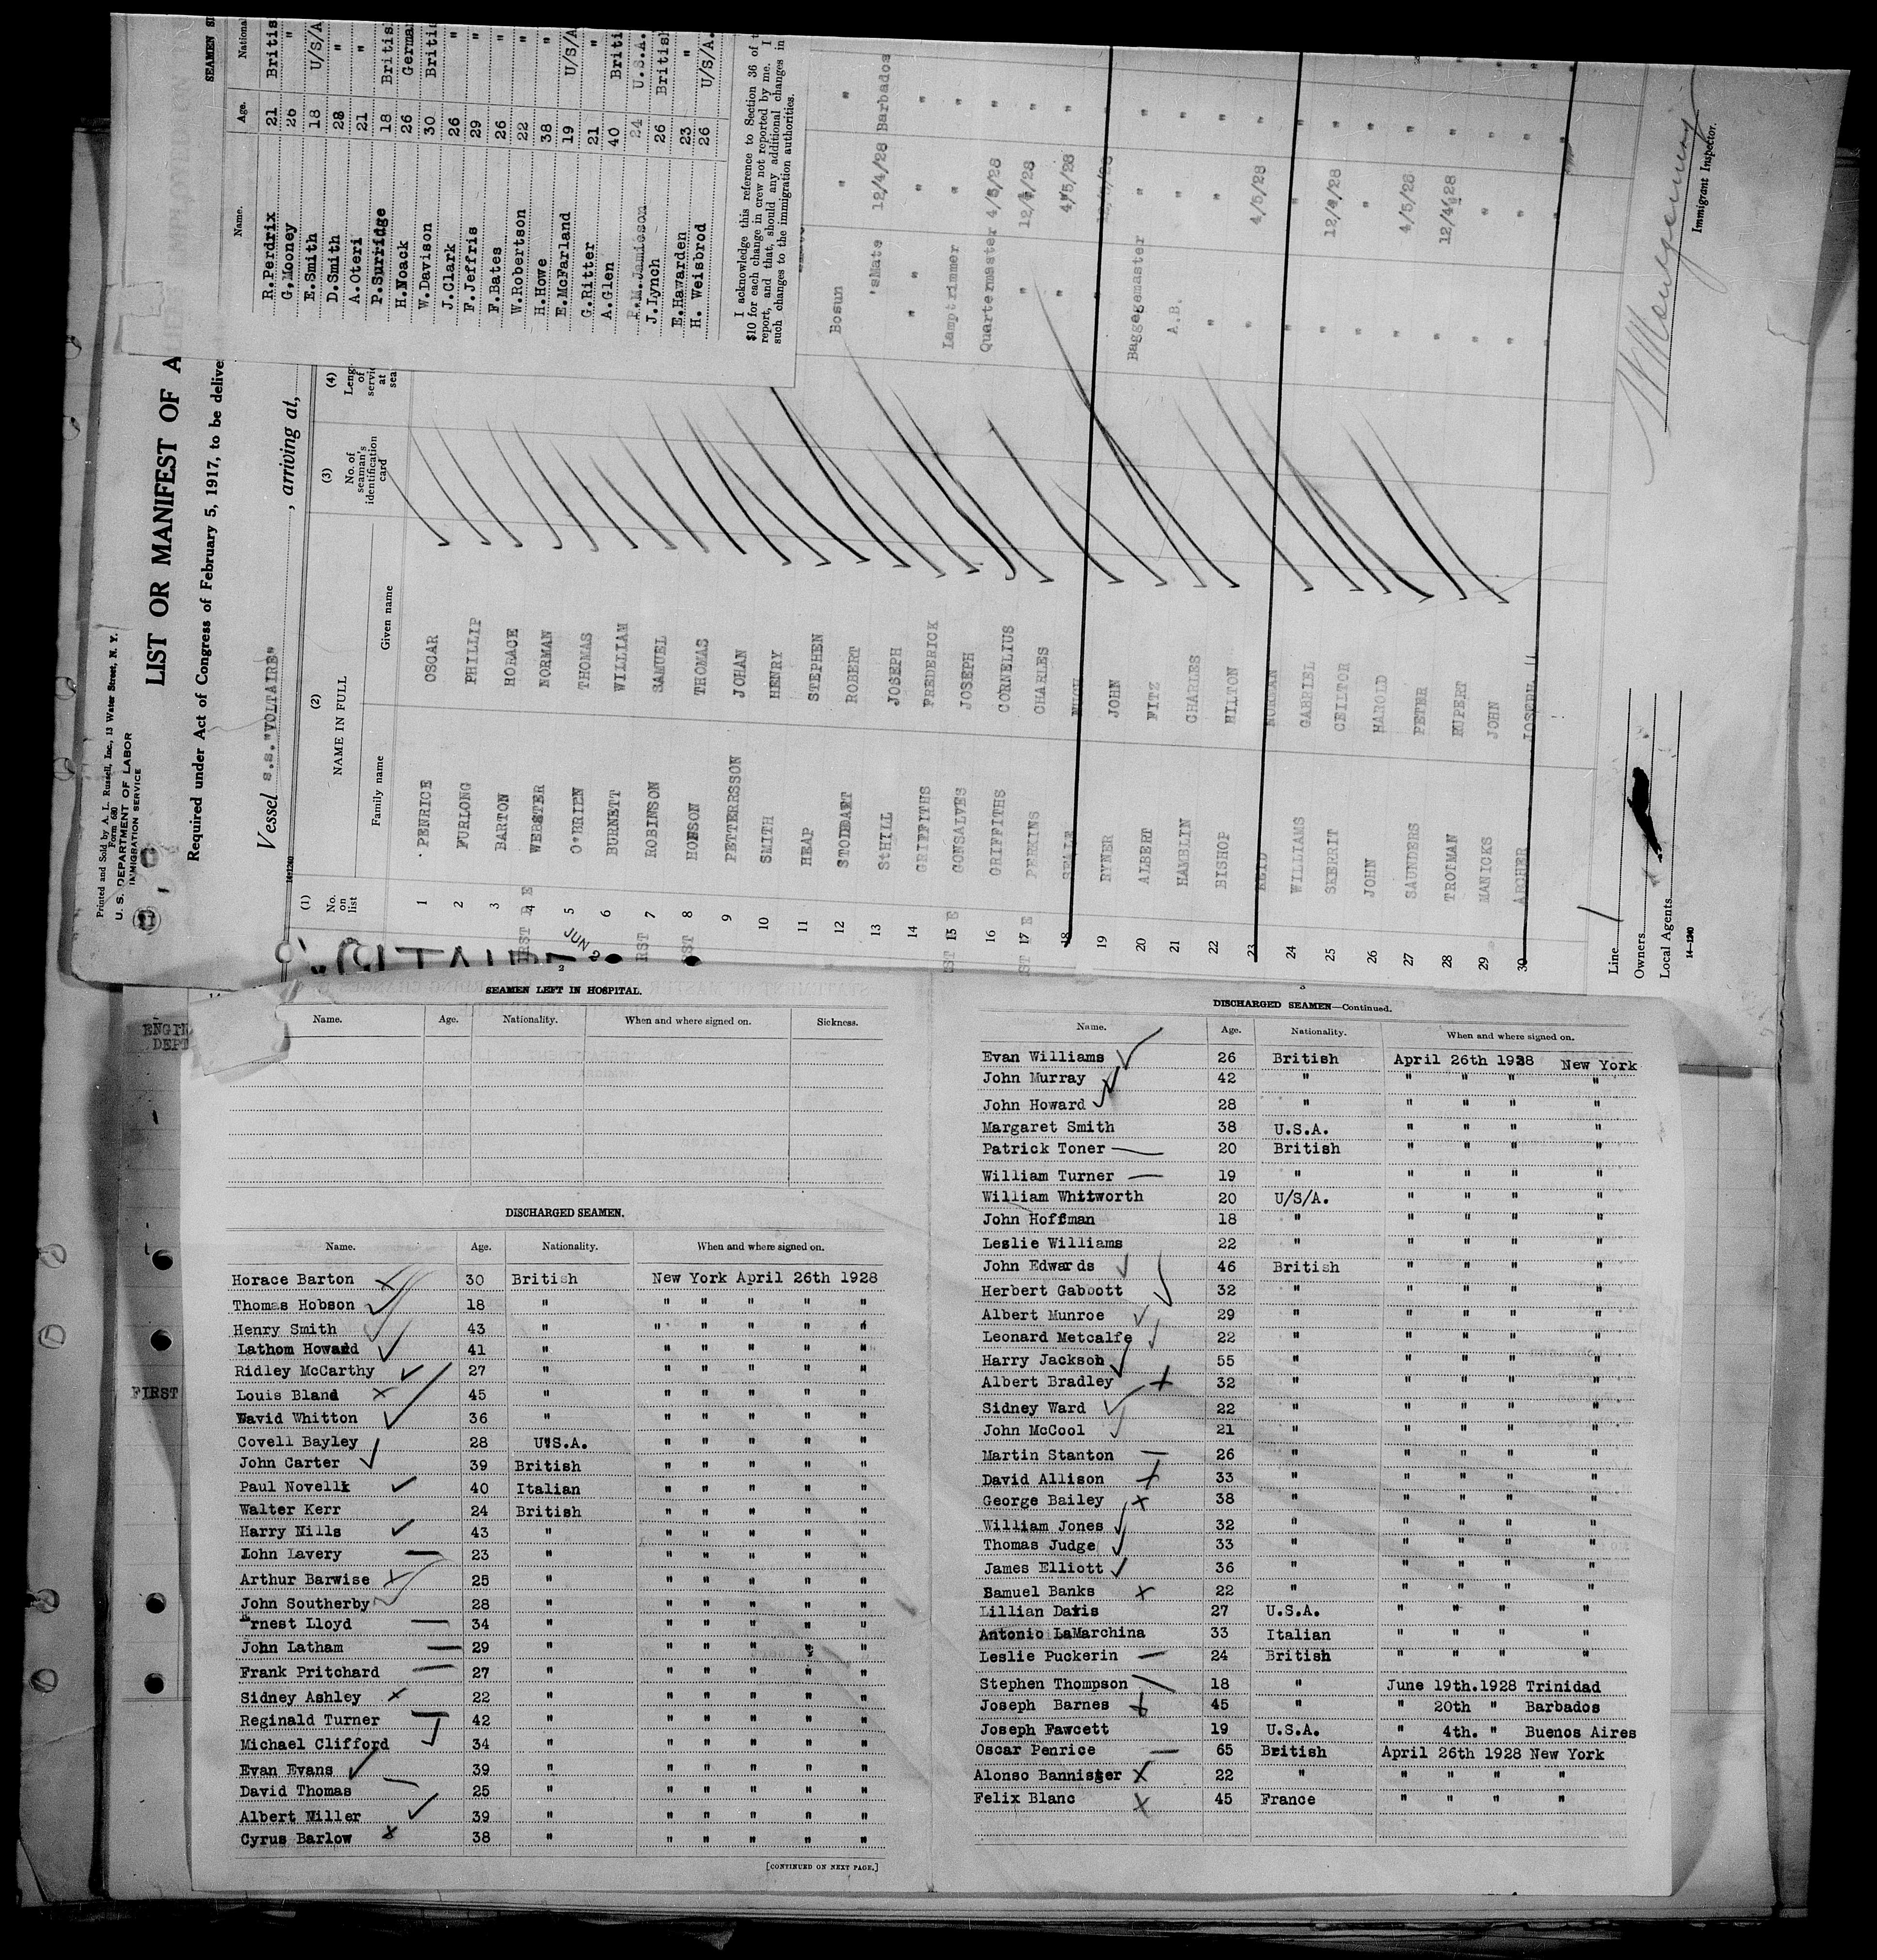 SEAMEN
Name. Age. National
R.Perdrix 21 Britis
G,Mooney 26 "
E.Smith 18 U/S/A
D.Smith 28 "
A.Oteri 21 "
P.Surridge 18 British
H.Noack 26 Germa
W.Davison 30 Briti
J.Clark 26 "
F.Jeffris 29 "
F.Bates 26 "
W.Robertson 22 "
H.Howe 38 "
E.McFarland 19 U/S/A
G.Ritter 21 "
A.Glen 40 Briti
P.M.Jamieson 24 U.S.A.
J.Lynch 26 British
E.Hawarden 23 "
H. Weisbrod 26 U/S/A.
I acknowledge this reference to Section 36 of t
$10 for each change in crew not reported by me. I
report, and that, should any additional changes in
such changes to the immigration authorities.
Printed and Sold by A. L. Russell, Inc., 13 Water Street, N. Y.
Form 680
U. S. DEPARTMENT OF LABOR
IMMIGRATION SERVICE
LIST OR MANIFEST OF A
Required under Act of Congress of February 5, 1917, to be delive
Vessel s.s."VOLTAIRE" , arriving at,
14-1240
(1) (2) (3) (4)
No. on list NAME IN FULL No. of seaman's identification card Leng of servic at sea
Family name Given name
1 PENRICE OSCAR
2 FURLONG PHILLIP
3 BARTON HORACE
4 WEBSTER NORMAN
5 O'BRIEN THOMAS
6 BURNETT WILLIAM
7 ROBINSON SAMUEL
8 HOBSON THOMAS
9 PETTERSSON JOHAN
10 SMITH HENRY
11 HEAP STEPHEN Bosun " "
12 STODDART ROBERT 'sMate 12/4/28 Barbados
13 StHILL JOSEPH " " "
14 GRIFFITHS FREDERICK Lamptrimmer " "
15 GONSALVES JOSEPH Quartermaster 4/5/28 "
16 GRIFFITHS CORNELIUS " 12/4/28 "
17 PERKINS CHARLES " 4/5/28 "
18 BEALE HUGH "
19 BYNER JOHN Baggagemaster " "
20 ALBERT FITZ A.B. " "
21 HAMBLIN CHARLES " " "
22 BISHOP HILTON " 4/5/28 "
23 REID NORMAN " " "
24 WILLIAMS GABRIEL " 12/4/28 "
25 SKERRIT CHILTON " " "
26 JOHN HAROLD " 4/5/28 "
27 SAUNDERS PETER " 12/4/28 "
28 TROTMAN RUPERT " " "
29 MANICKS JOHN " " "
30 ARCHER JOSEPH
Immigrant Inspector.
Line
Owners
Local Agents
14-1240
JUN
ENGIN
DEPT
FIRST
SEAMEN LEFT IN HOSPITAL.
Name. Age. Nationality. When and where signed on. Sickness.
DISCHARGED SEAMEN.
Name. Age. Nationality. When and where signed on.
Horace Barton 30 British New York April 26th 1928
Thomas Hobson 18 " " " " " "
Henry Smith 43 " " " " " "
Lathom Howard 41 " " " " " "
Ridley McCarthy 27 " " " " " "
Louis Bland 45 " " " " " "
David Whitton 36 " " " " " "
Covell Bayley 28 U.S.A. " " " " "
John Carter 39 British " " " " "
Paul Novelli 40 Italian " " " " "
Walter Kerr 24 British " " " " "
Harry Mills 43 " " " " " "
John Lavery 23 " " " " " "
Arthur Barwise 25 " " " " " "
John Southerby 28 " " " " " "
Ernest Lloyd 34 " " " " " "
John Latham 29 " " " " " "
Frank Pritchard 27 " " " " " "
Sidney Ashley 22 " " " " " "
Reginald Turner 42 " " " " " "
Michael Clifford 34 " " " " " "
Evan Evans 39 " " " " " "
David Thomas 25 " " " " " "
Albert Miller 39 " " " " " "
Cyrus Barlow 38 " " " " " "
[CONTINUED ON NEXT PAGE.]
DISCHARGED SEAMEN—Continued.
Name. Age. Nationality. When and where signed on.
Evan Williams 26 British April 26th 1928 New York
John Murray 42 " " " " "
John Howard 28 " " " " "
Margaret Smith 38 U.S.A. " " " "
Patrick Toner 20 British " " " "
William Turner 19 " " " " "
William Whitworth 20 U/S/A. " " " "
John Hoffman 18 " " " " "
Leslie Williams 22 " " " " "
John Edwards 46 British " " " "
Herbert Gabbott 32 " " " " "
Albert Munroe 29 " " " " "
Leonard Metcalfe 22 " " " " "
Harry Jackson 55 " " " " "
Albert Bradley 32 " " " " "
Sidney Ward 22 " " " " "
John McCool 21 " " " " "
Martin Stanton 26 " " " " "
David Allison 33 " " " " "
George Bailey 38 " " " " "
William Jones 32 " " " " "
Thomas Judge 33 " " " " "
James Elliott 36 " " " " "
Samuel Banks 22 " " " " "
Lillian Davis 27 U.S.A. " " " "
Antonio LaMarchina 33 Italian " " " "
Leslie Puckerin 24 British " " " "
Stephen Thompson 18 " June 19th.1928 Trinidad
Joseph Barnes 45 " " 20th " Barbados
Joseph Fawcett 19 U.S.A. " 4th. " Buenos Aires
Oscar Penrice 65 British April 26th 1928 New York
Alonso Bannister 22 " " " " "
Felix Blanc 45 France " " " "